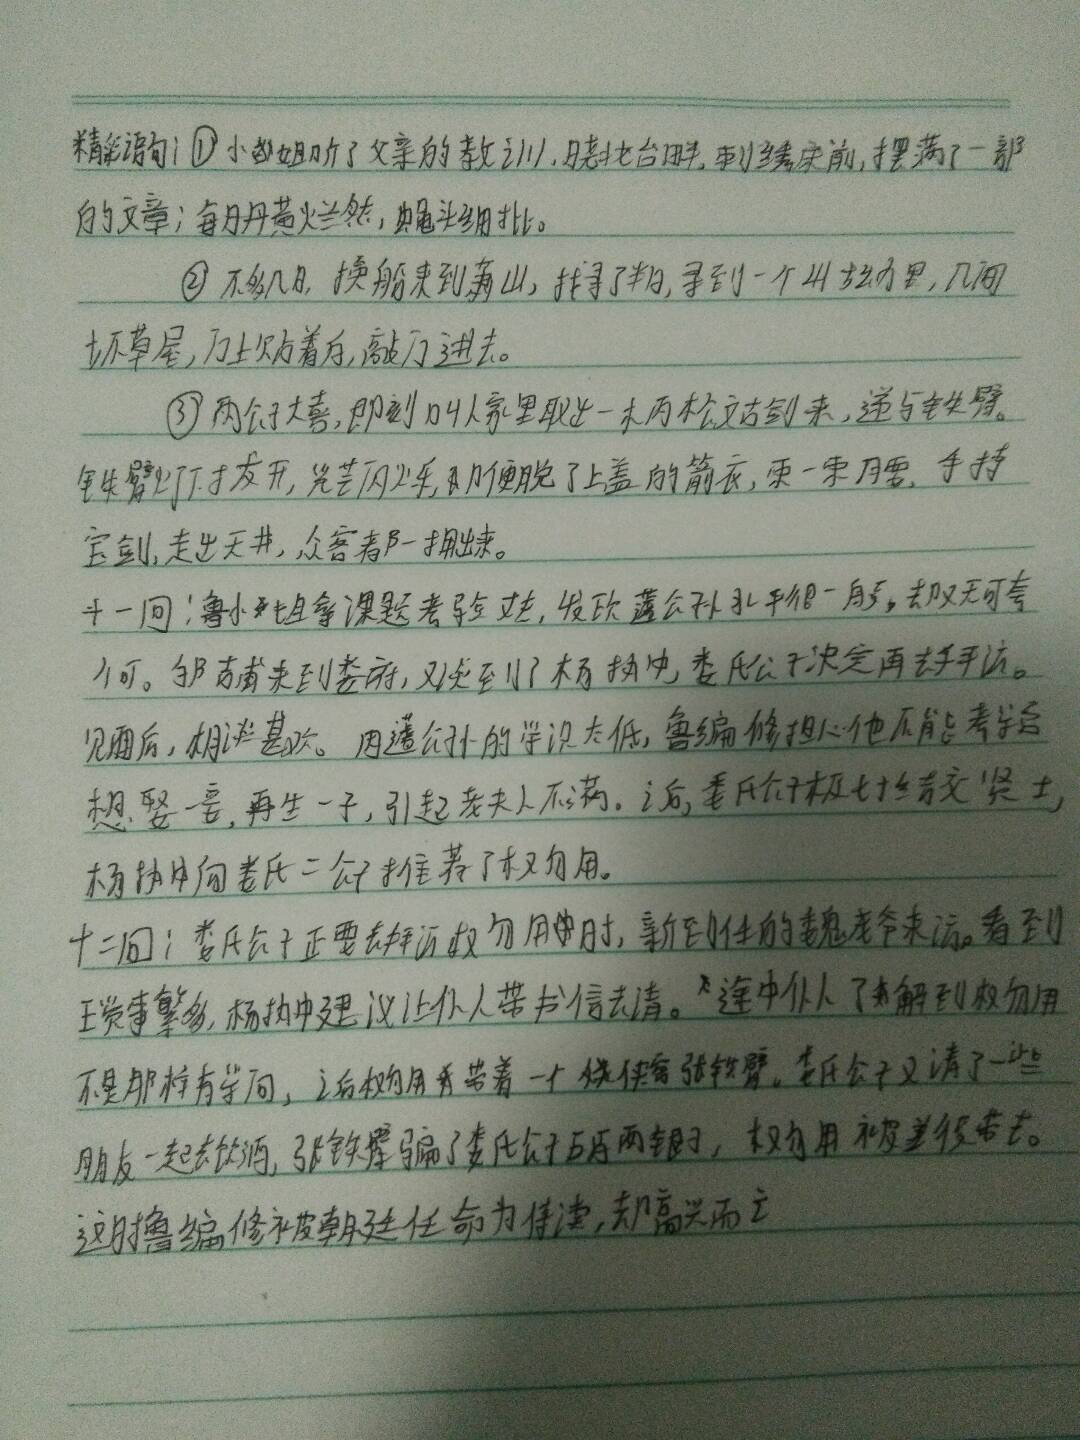 精彩语句：①小姐听了父亲的教训，晓妆台畔，刺绣床前，摆满了一部
的文章；每日丹黄烂然，蝇头细批。
②不多几日，换船来到萧山，找寻了半日，寻到一个山坳里，几间
坏草屋，门上贴着白，敲门进去。
③两公子大喜，即刻叫人家里取出一柄松文古剑来，递与铁臂。
铁臂灯下拔开，光芒闪烁，即便脱了上盖的箭衣，束一束腰，手持
宝剑，走出天井，众客都一拥出来。
十一回：鲁小姐拿课题考验丈夫，发现蘧公孙水平很一般，却又无可奈
何。邹吉甫来到娄府，又谈到了杨执中，娄氏公子决定再去拜访。
见面后，相谈甚欢。因蘧公孙的学识太低，鲁编修担心他不能考学后
想娶一妾，再生一子，引起老夫人不满。之后，娄氏公子极力结交贤士，
杨执中向娄氏二公子推荐了权勿用。
十二回：娄氏公子正要去拜访权勿用时，新到任的魏老爷来访。看到
琐事繁多，杨执中建议让仆人带书信去请。途中仆人了解到权勿用
不是那样有学问，之后权勿用带着一个侠客张铁臂。娄氏公子又请了一些
朋友一起去饮酒，张铁臂骗了娄氏公子五百两银子，权勿用被差役带去。
这时鲁编修被朝廷任命为侍读，却高兴而亡